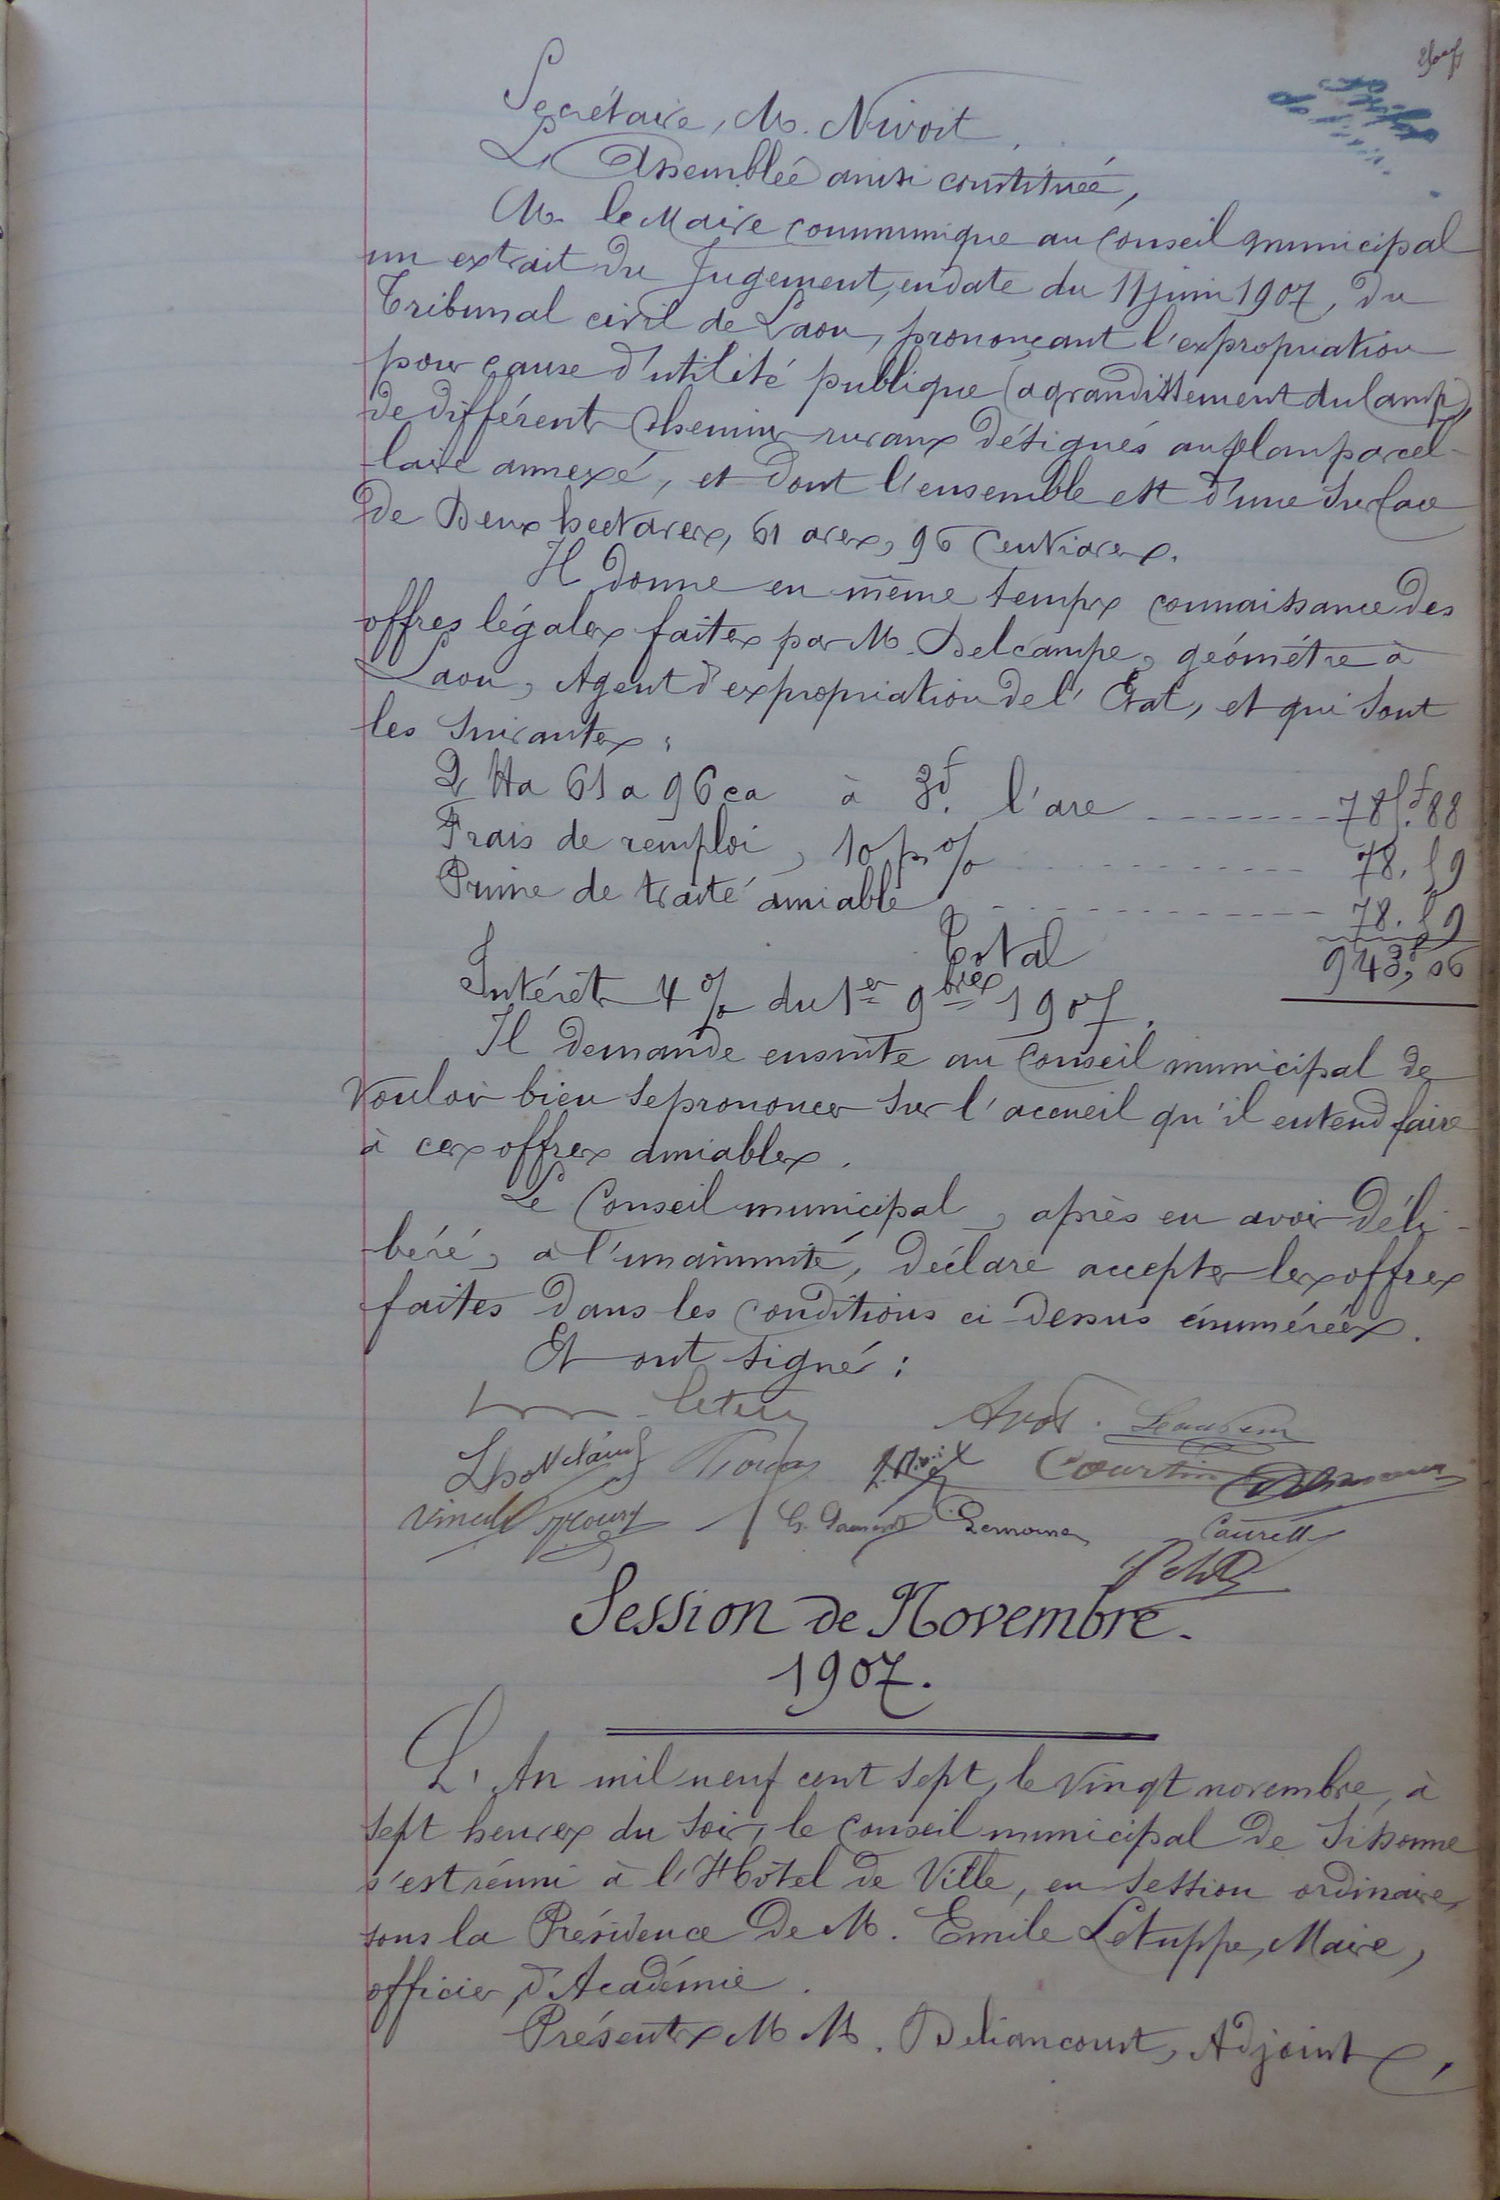 Secrétaire, M. Nivoit.
L'Assemblée ainsi constituée,
M. le Maire communique au Conseil municipal
un extrait du Jugement, en date du 11 juin 1907, du
Tribunal civil de Laon, prononçant l'expropriation
pour cause d'utilité publique (agrandissement du Camp),
de différents Chemins ruraux désignés au plan parcel-
laire annexé, et dont l'ensemble est d'une surface
de Deux hectares, 61 ares, 96 Centiares.
Il donne en même temps connaissance des
offres légales faites par M. Delcampe, géomètre à
Laon, Agent d'expropriation de l'Etat, et qui sont
les suivantes :
2 Ha 61 a 96 ca à 3f. l'are 785.f88
Frais de remploi, 10 p% 78.59
Prime de traité amiable 78.59
Total 943f,06
Intérêts 4% du 1er 9bres 1907.
Il demande ensuite au Conseil municipal de
vouloir bien se prononcer sur l'accueil qu'il entend faire
à ces offres amiables.
Le Conseil municipal, après en avoir déli-
béré, à l'unanimité, déclare accepter les offres
faites dans les conditions ci-dessus énumérées.
Et ont signé :
Courtin
Lemoine
Session de Novembre.
1907.
L'An mil neuf cent sept, le vingt novembre, à
sept heures du soir, le Conseil municipal de Sissonne
s'est réuni à l'Hôtel de Ville, en session ordinaire,
sous la Présidence de M. Emile Letuppe, Maire,
officier d'Académie.
Présents MM. Deliancourt, Adjoint,